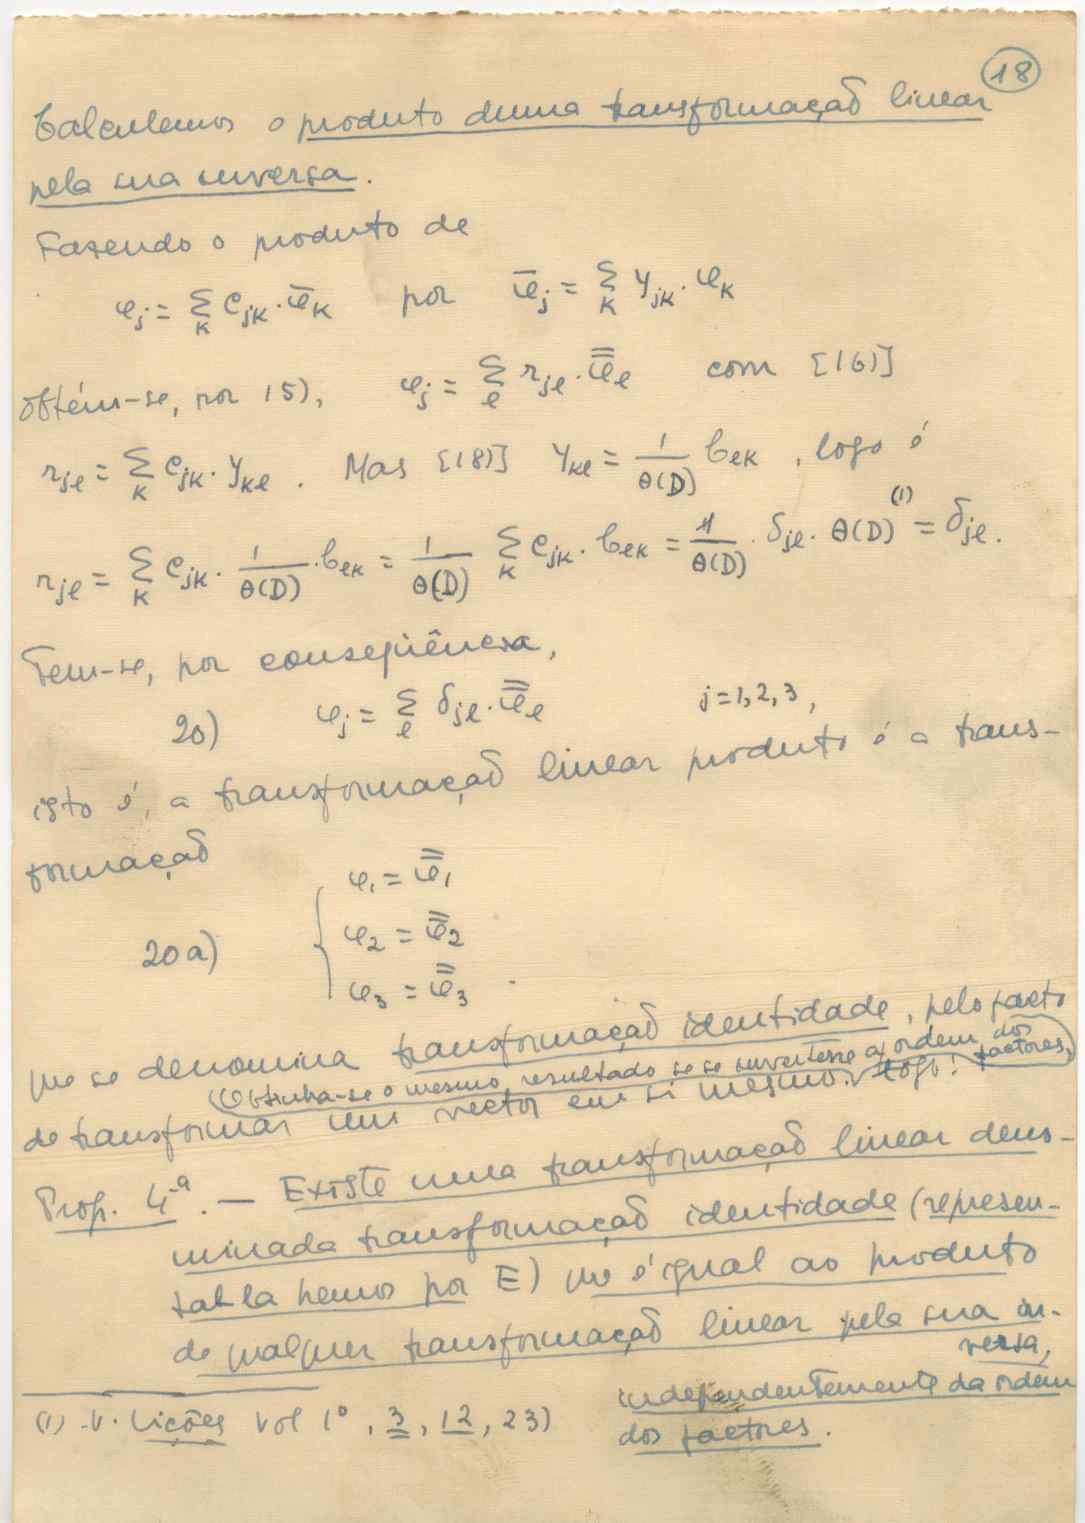 18
Calculemos o produto duma transformação linear
pela sua inversa.
Fazendo o produto de
φj = Σk cjk · φ̄k por φ̄j = Σk γjk · φk
obtém-se, por 15), φj = Σℓ rjℓ · φ̿ℓ com [16)]
rjℓ = Σk cjk · γkℓ . Mas [18)] γkℓ = 1/θ(D) bℓk , logo é
rjℓ = Σk cjk · 1/θ(D) · bℓk = 1/θ(D) Σk cjk · bℓk = 1/θ(D) · δjℓ · θ(D) (1) = δjℓ.
Tem-se, por conseqüência,
20) φj = Σℓ δjℓ · φ̿ℓ j=1,2,3,
isto é, a transformação linear produto é a trans-
formação
φ1 = φ̿1
20a) φ2 = φ̿2
φ3 = φ̿3 .
que se denomina transformação identidade, pelo facto
(Obtinha-se o mesmo resultado se se invertesse a ordem dos factores,)
de transformar um vector em si mesmo. Logo:
Prop. 4-a. — Existe uma transformação linear deno-
minada transformação identidade (represen-
tal-la hemos por E) que é igual ao produto
de qualquer transformação linear pela sua in-
versa,
independentemente da ordem
dos factores.
(1) V. Lições vol 1º, 3, 12, 23)